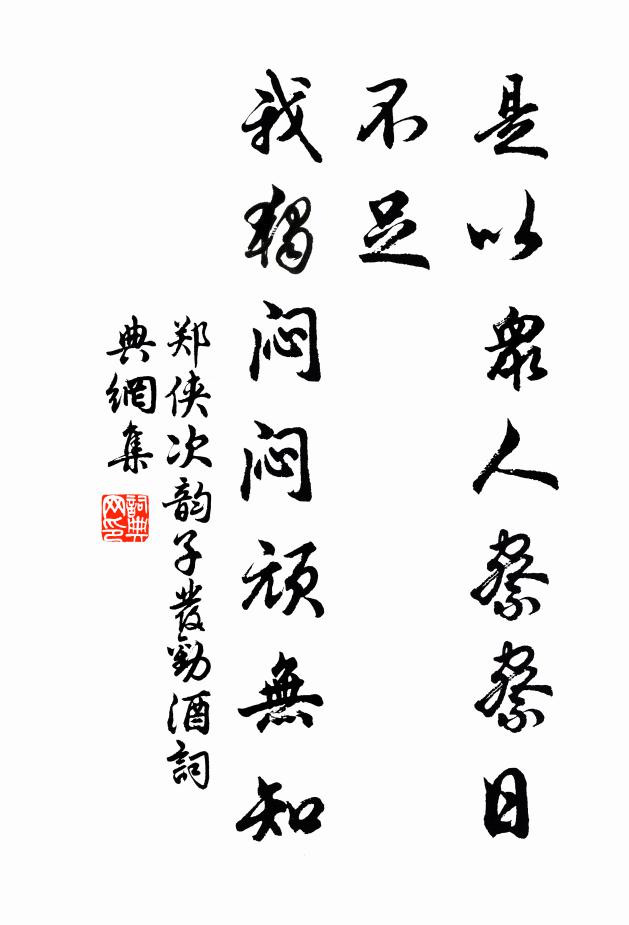 是以衆人察察日
不足
我獨闷闷頑無知
郑侠次韵子發勸酒詞
典網集
詞典
网印